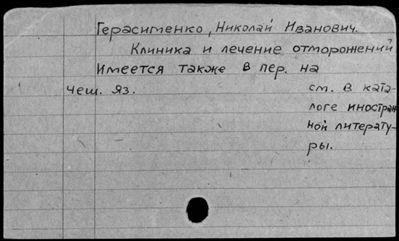 Герасименко, Николай Иванович.
Клиника и лечение отморожений
Имеется также в пер. на
чеш. яз.
см. в ката-
логе иностран
ной литерату-
ры.